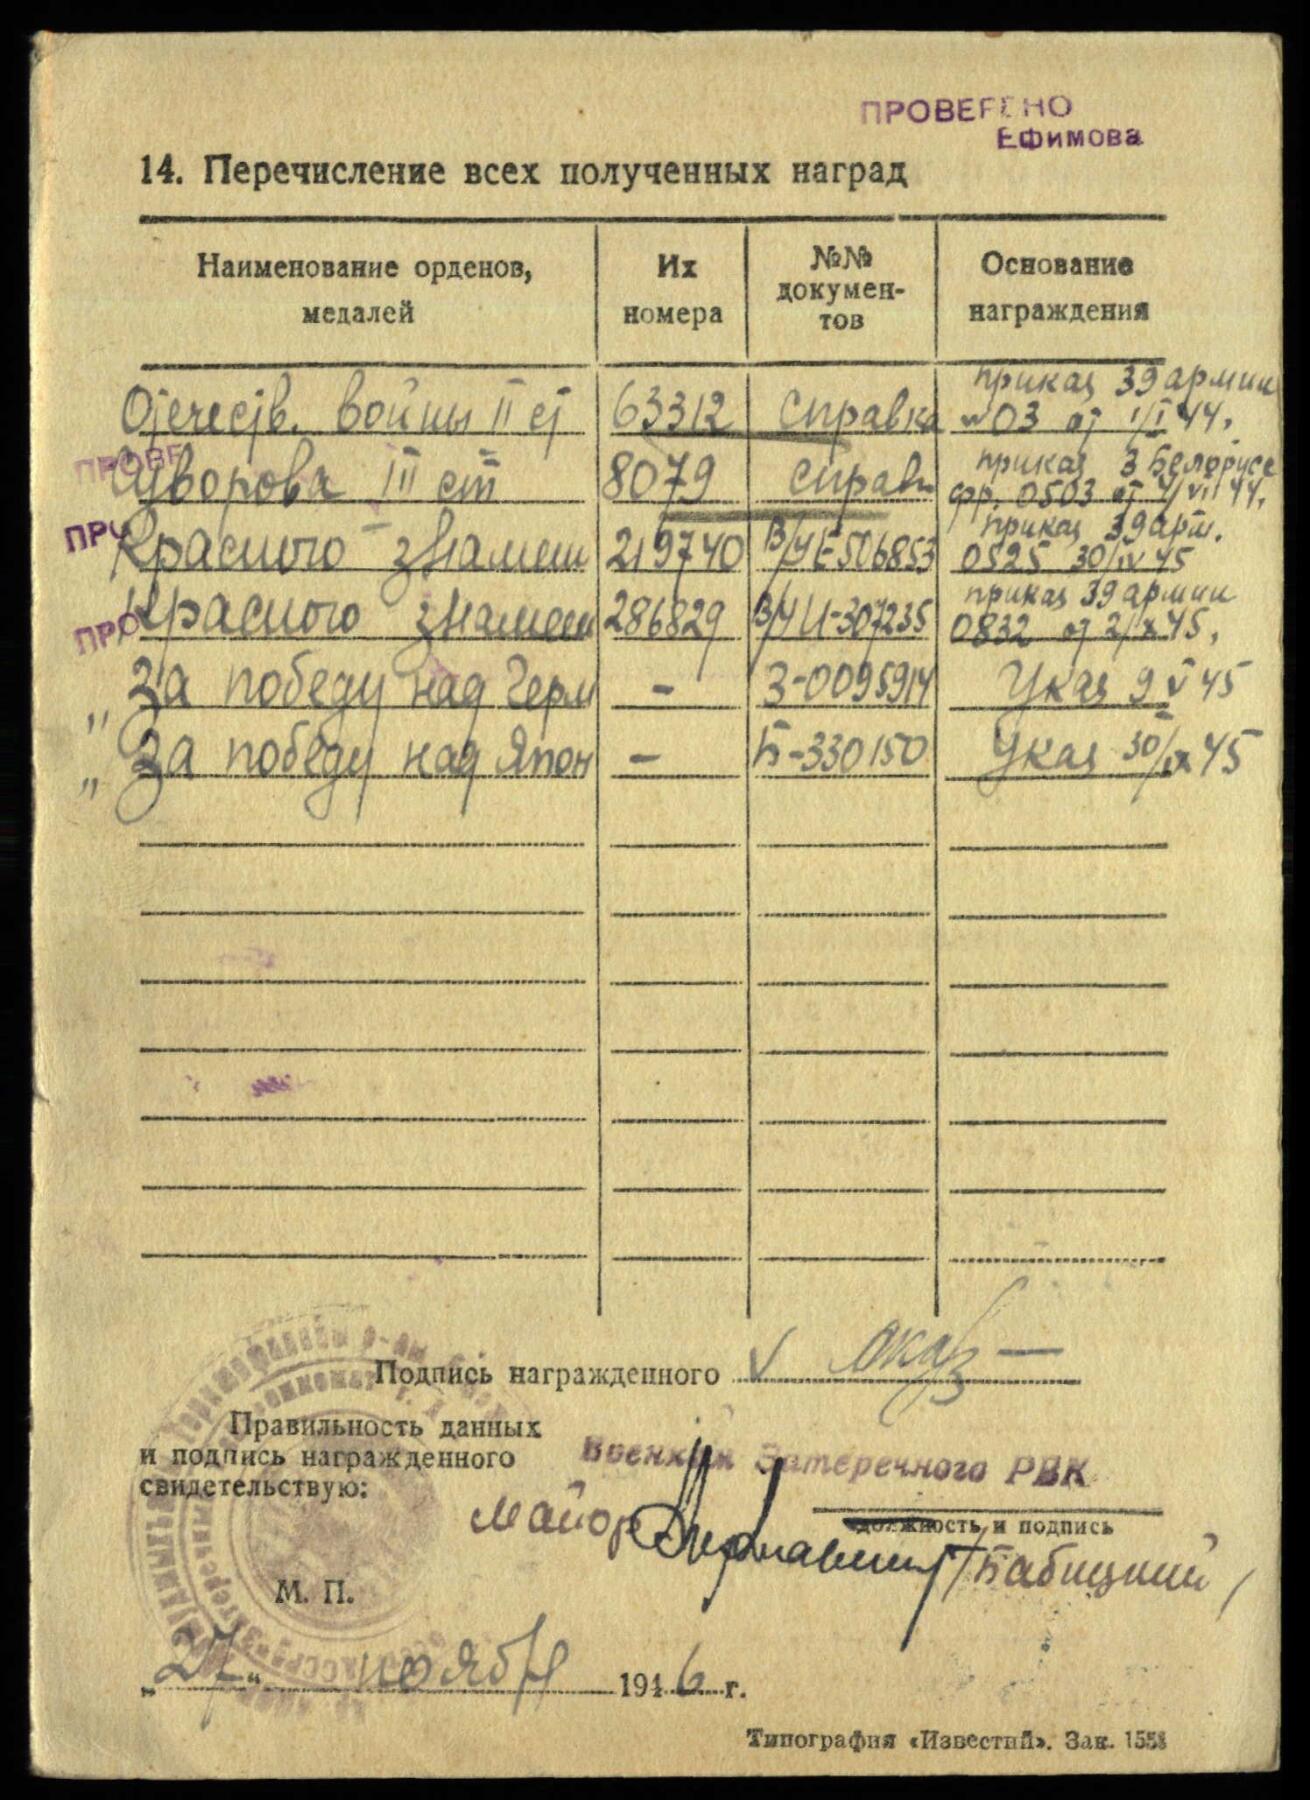 ПРОВЕРЕНО
Ефимова
14. Перечисление всех полученных наград
Наименование орденов, медалей
Их номера
№№ докумен-тов
Основание награждения
Отечеств. войны II ст 63312 справка приказ 39 армии №03 от 1/I 44.
ПРОВЕ
Суворова III ст 8079 справк приказ 3 Белорусс фр. 0503 от 4/VII 44.
ПРО
Красного знамени 219740 В/Ч Е-506853 приказ 39 арм. 0525 30/IV 45
ПРО
Красного знамени 286829 В/Ч И-307235 приказ 39 армии 0832 от 2/X 45.
"За победу над Герм - З-0095914 Указ 9 V 45
"За победу над Япон - Б-330150 Указ 30/IX 45
Подпись награжденного
Правильность данных
и подпись награжденного
свидетельствую:
Военком Затеречного РВК
должность и подпись
майор /Бабицкий/
М. П.
„27“ ноября 1946 г.
Типография «Известий». Зак. 1558